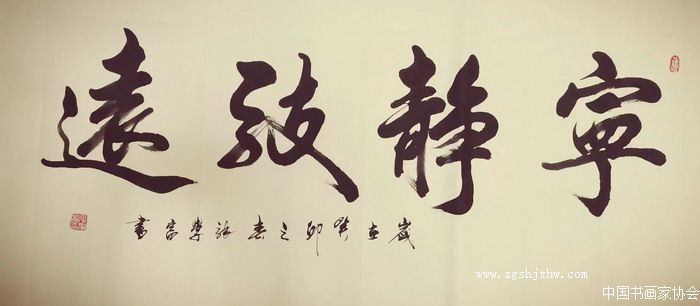 寧靜致遠
歲在癸卯之春李宗書
www.zgshjxhw.com
中国书画家协会